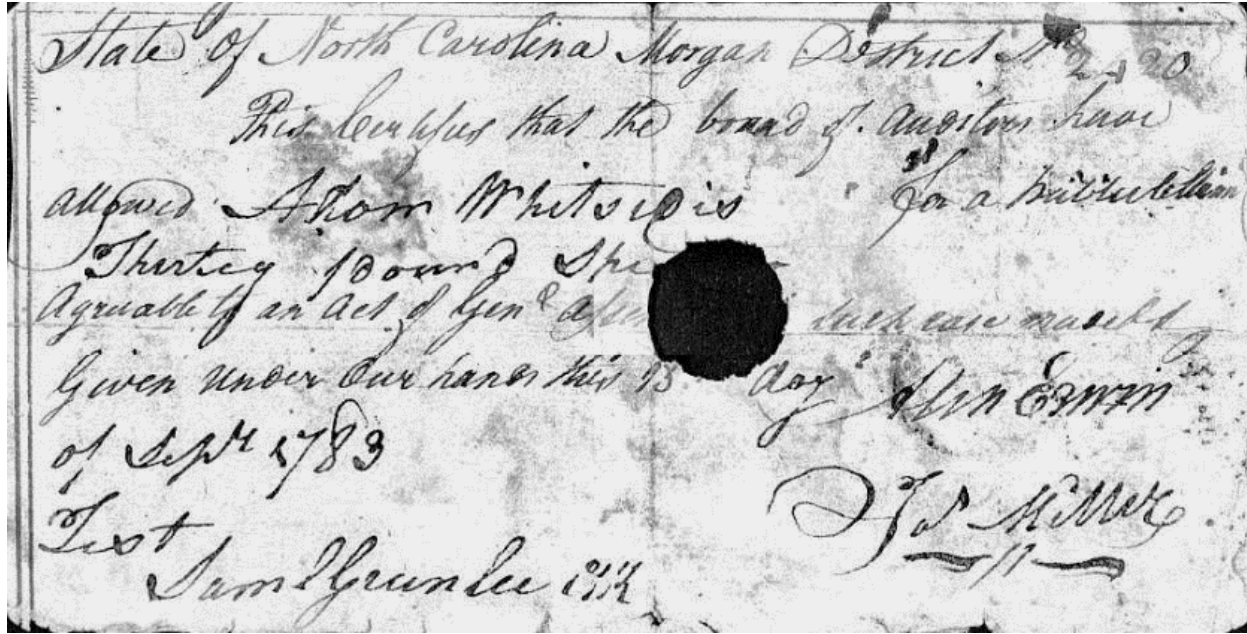 State of North Carolina Morgan District No 2420
This Certifies that the board of Auditors have
allowed Adom Whitsidis for a
Thirtiey pound Spe
Agreuable to an Act of Genl Assem such case made &
Given under Our hands this 13 day Alexn Erwin
of Sepr 1783
Jos McMillr
Test
Saml Grunlee Clk